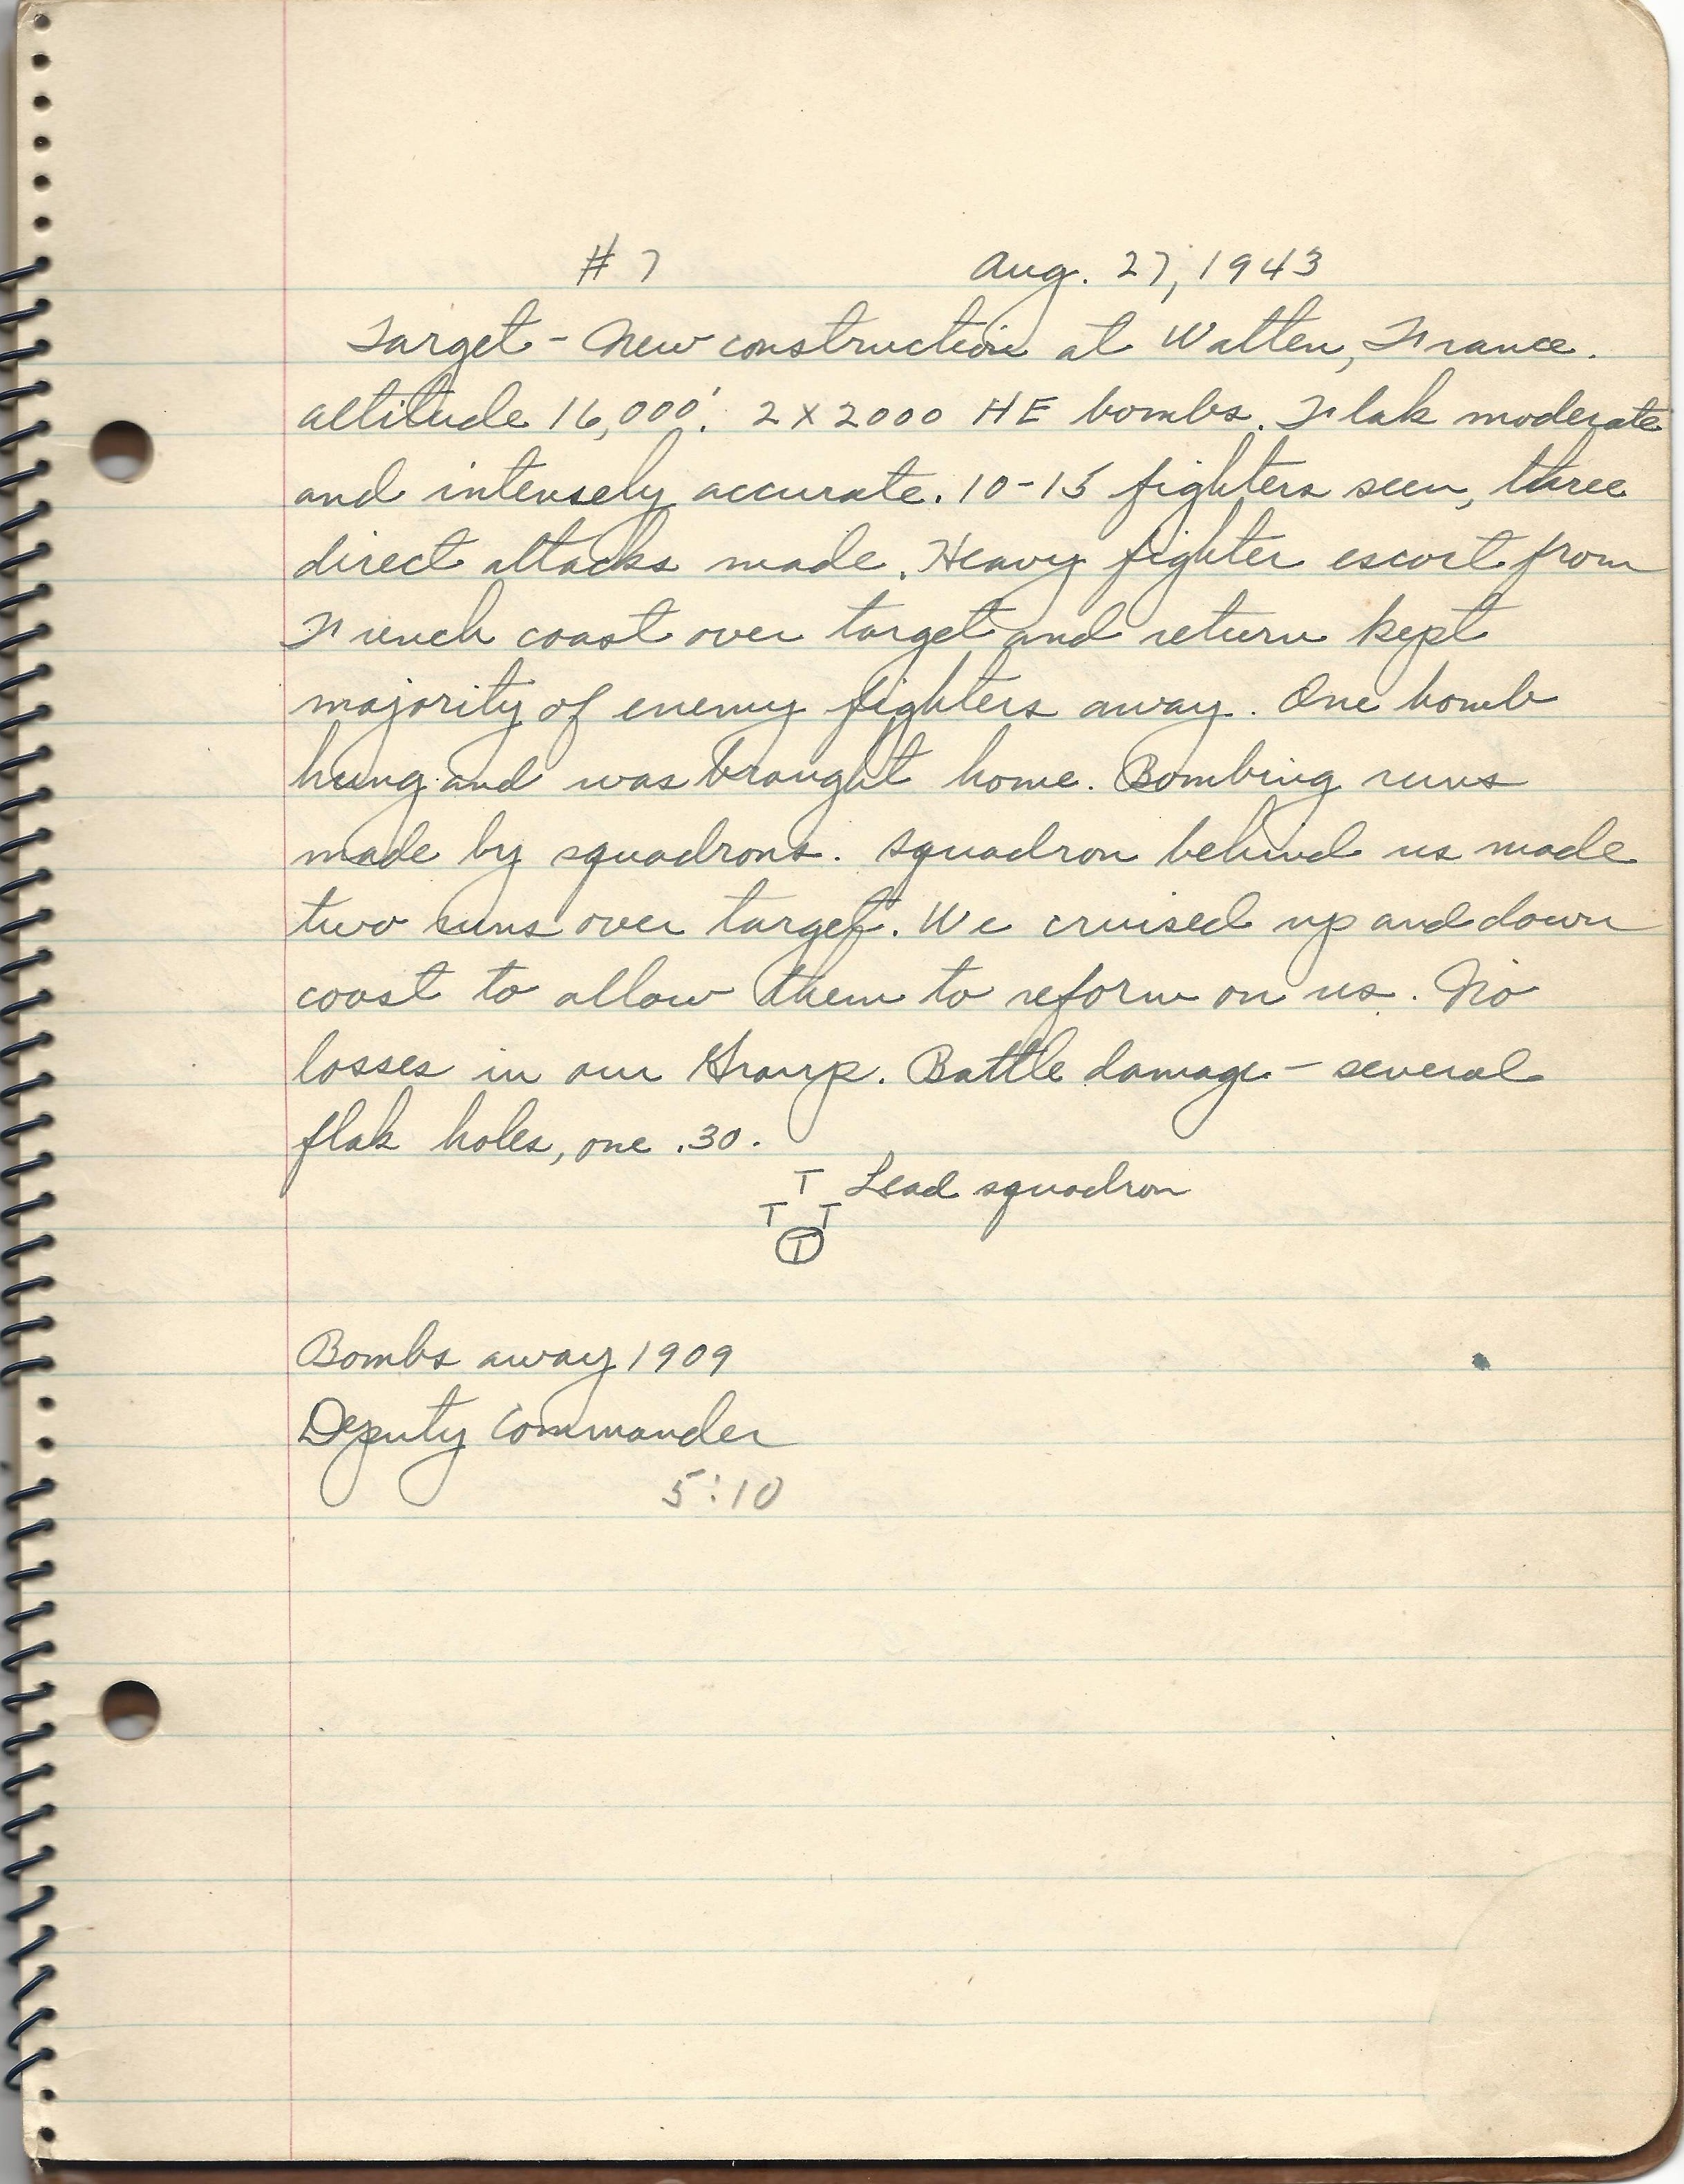 # 7 Aug. 27, 1943
Target - New construction at Watten, France.
altitude 16,000'. 2 x 2000 HE bombs. Flak moderate
and intensely accurate. 10-15 fighters seen, three
direct attacks made. Heavy fighter escort from
French coast over target and return kept
majority of enemy fighters away. One bomb
hung and was brought home. Bombing runs
made by squadrons. Squadron behind us made
two runs over target. We cruised up and down
coast to allow them to reform on us. No
losses in our Group. Battle damage - several
flak holes, one .30.
T Lead squadron
T T
T
Bombs away 1909
Deputy Commander
5:10